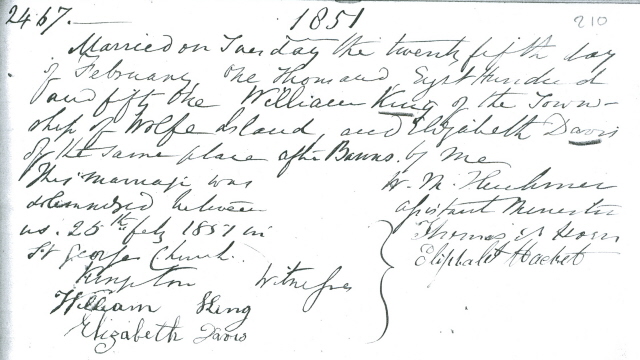 2467.
1851
210
Married on Tuesday the twenty fifth day
of February One Thousand Eight Hundred
and fifty One William King of the Town-
ship of Wolfe Island, and Elizabeth Davis
of the same place after Banns. by me
This marriage was
solemnized between
us. 25th feby 1851 in
St Georges Church.
Kingston Witnesses
William King
Elizabeth Davis
W. M. Herchmer
assistant Minister
Thomas
Eliphalet Hacket